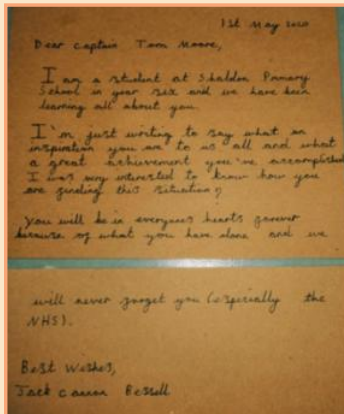 1st May 2020
Dear Captain Tom Moore,
I am a student at Shaldon Primary
School in year six and we have been
learning all about you.
I'm just writing to say what an
inspiration you are to us all and what
a great achievement you've accomplished
I was very interested to know how you
are finding this situation?
You will be in everyones hearts forever
because of what you have done and we
will never forget you (especially the
NHS).
Best Wishes,
Jack Bessell